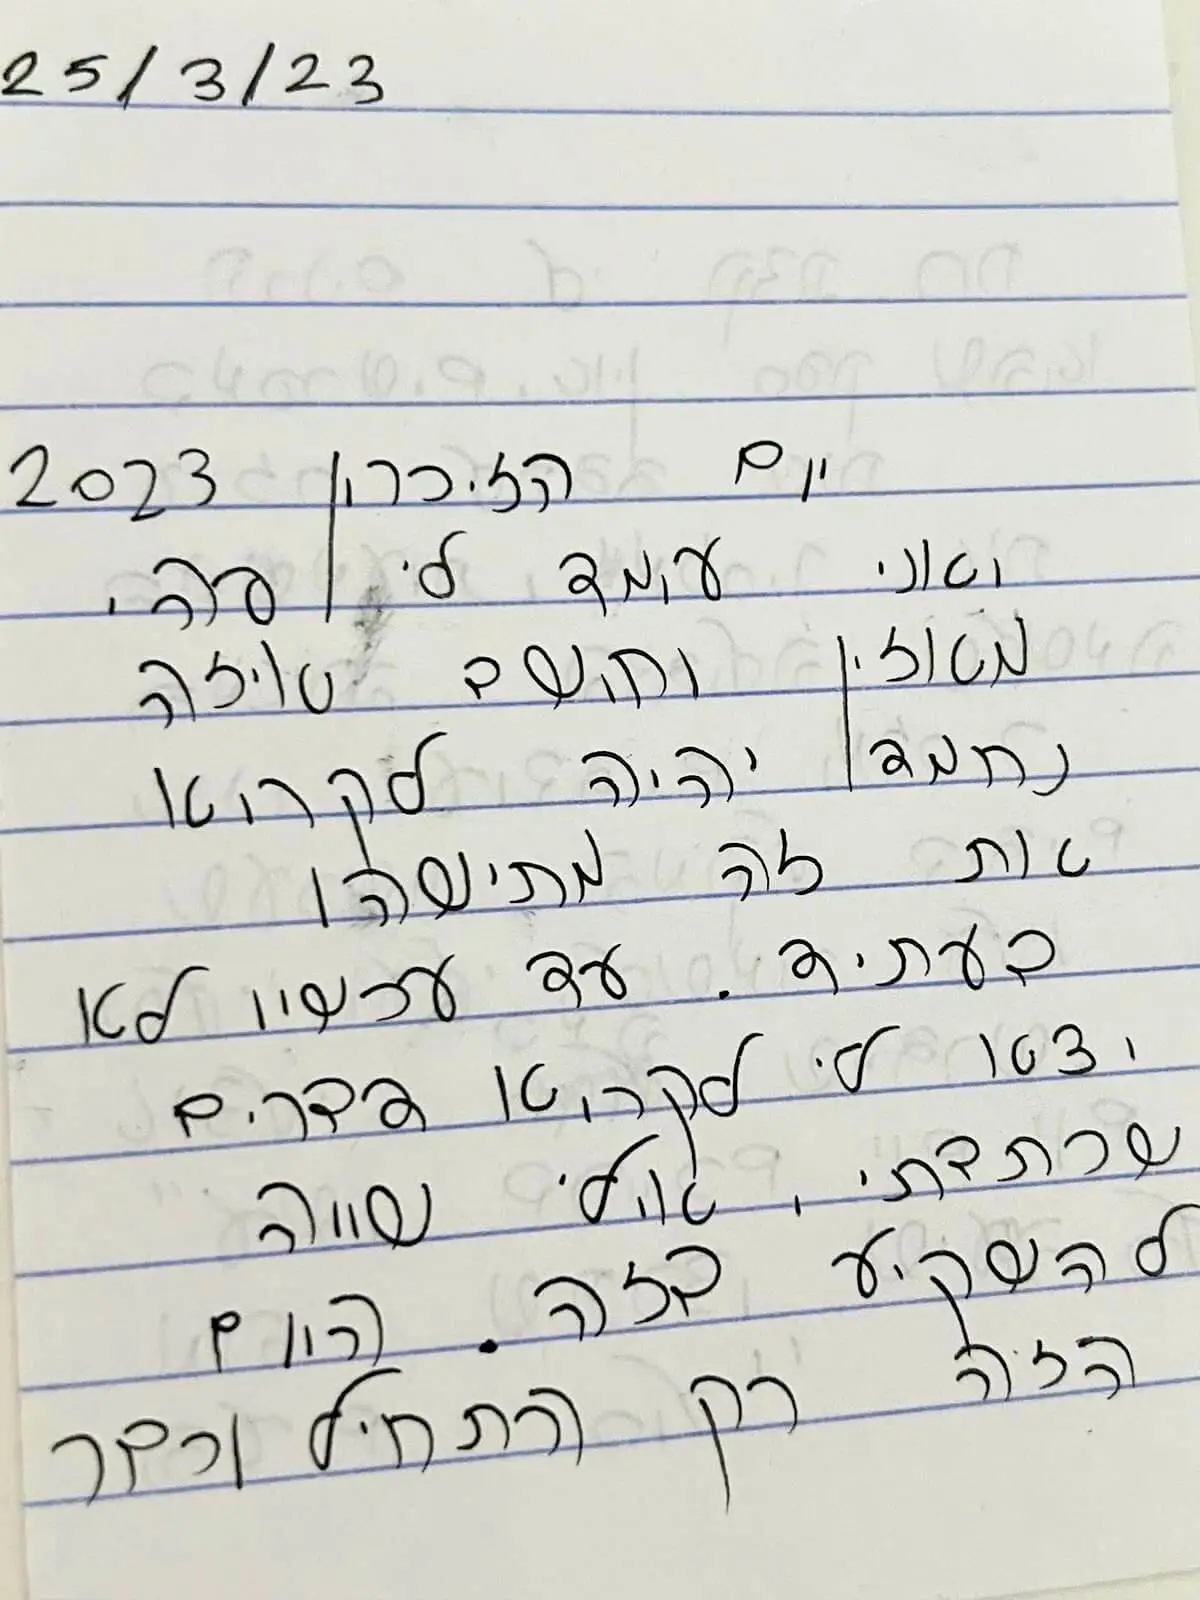 25/3/23
יום הזיכרון 2023
ואני עומד לי פה,
מאזין וחושב איזה
נחמד יהיה לקרוא
את זה מתישהו
בעתיד. עד עכשיו לא
יצא לי לקרוא דברים
שכתבתי, אולי שווה
להשקיע בזה. היום
הזה רק התחיל וכבר